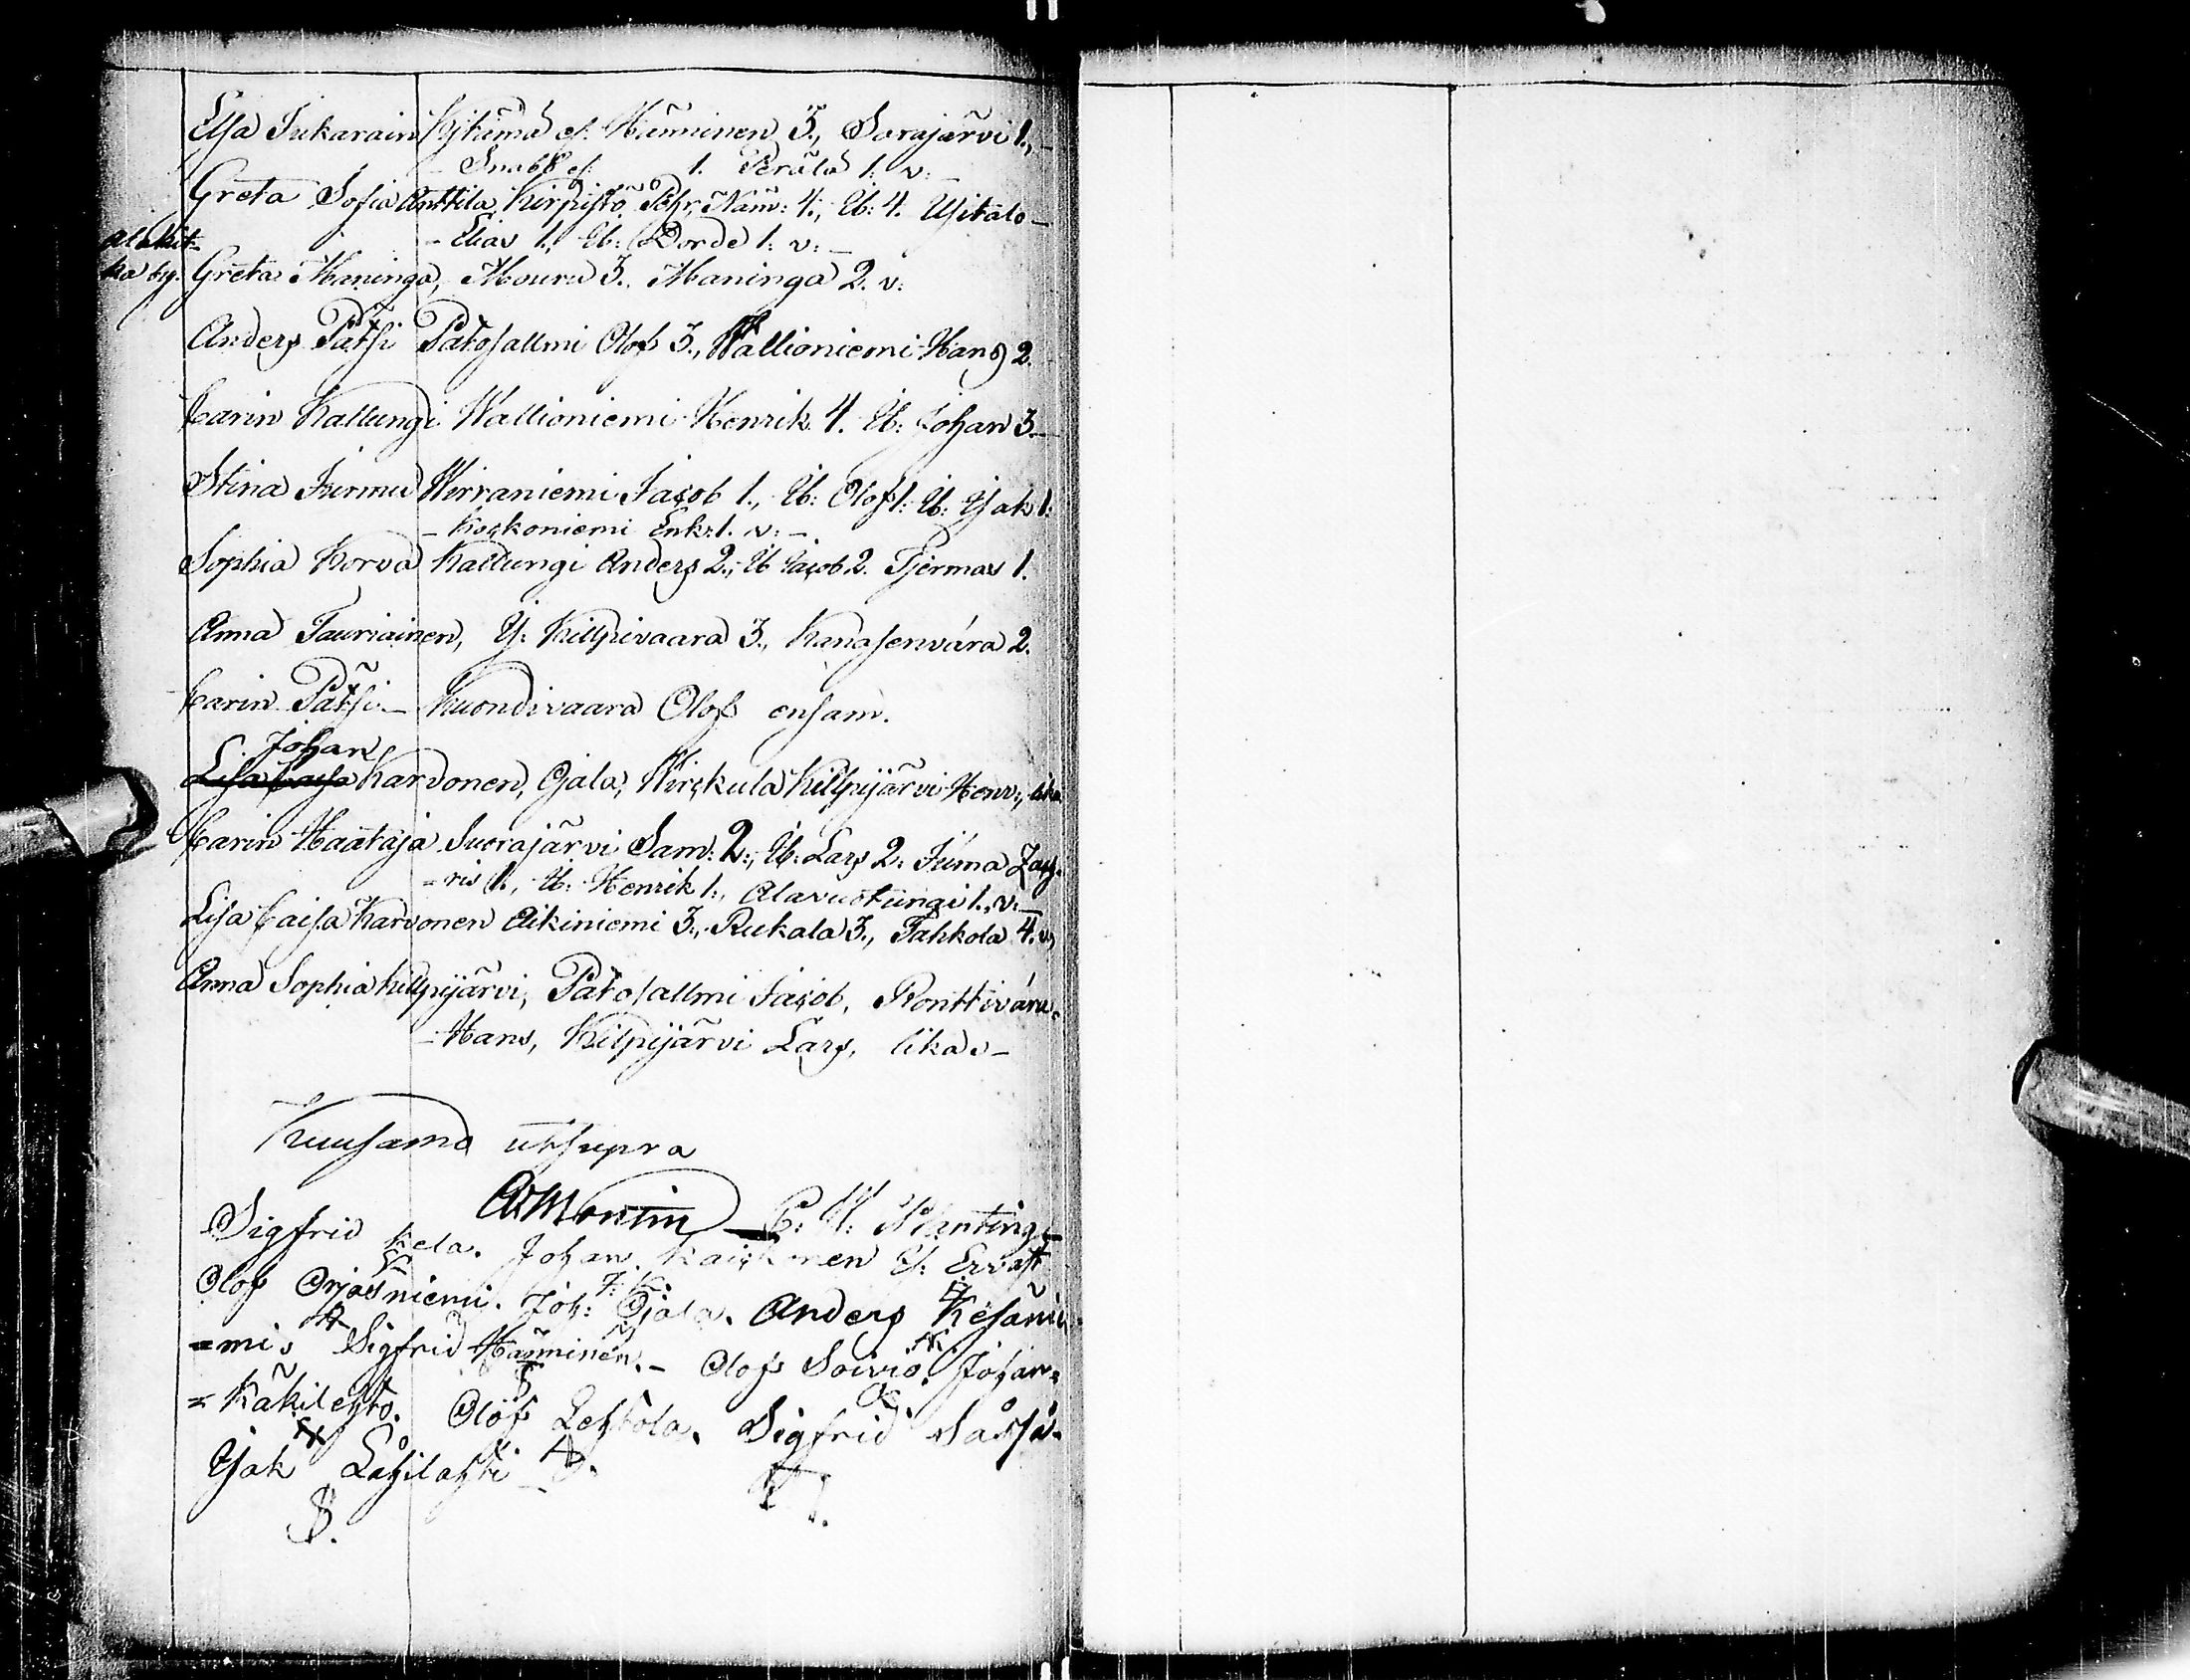 Elsa Inkarain Kjtämä ef. Hänninen 3., Sarajärvi 1.,
- Snabb ef. 1. Perälä 1: v: -
Greta Sofia Anttila, Kirpistö Pehr, Näm: 4., ib: 4. Ujitalo -
alakit-
- Elias 1., ib: Dorde 1: v: -
ka by. Greta Maninga, Mouru 3., Maninga 2. v:
Anders Pätsi Patosallmi Olof 3., Wallioniemi Hans 2.
Carin Kallungi Wallioniemi Henrik 4. ib: Johan 3. -
Stina Jurmu Wirraniemi Jacob 1., ib: Olof 1: ib: Isak 1:
- Koskoniemi Enk: 1. v: -
Sophia Korva Kallungi Anders 2., ib Jacob 2. Tjermas 1.
Anna Tauriainen, Y: Killpivaara 3., Kanasenvára 2.
Carin Pätsi - Kuondivaara Olof ensam.
Johan
Lisa Caisa Karvonen, Ojala, Wirckula Killpijärvi Henr:, lika
Carin Haataja Suorajärvi Sam: 2:, ib: Lars 2: Juma Zach-
=ris 1., ib: Henrik 1:, Alavuotungi 1., v: -
Lisa Caisa Karvonen Aikiniemi 3., Rukala 3., Tahkola 4. v:
Anna Sophia Killpijärvi, Patosallmi Jacob, Ronttivára-
- Hans, Kilpijärvi Lars, lika v -
Kuusamo utsupra
Montin E: W: Planting
Sigfrid Kela. Johan Kaickonen E: Ervast
Olof Orjasniemi. Joh: Ojala. Anders Kesänie
=mi. Sigfrid Hänninen. - Olof Soivio. Johan=
= Käkilehto. Olof Lehtola. Sigfrid Säkki.
Isak Låhilahti